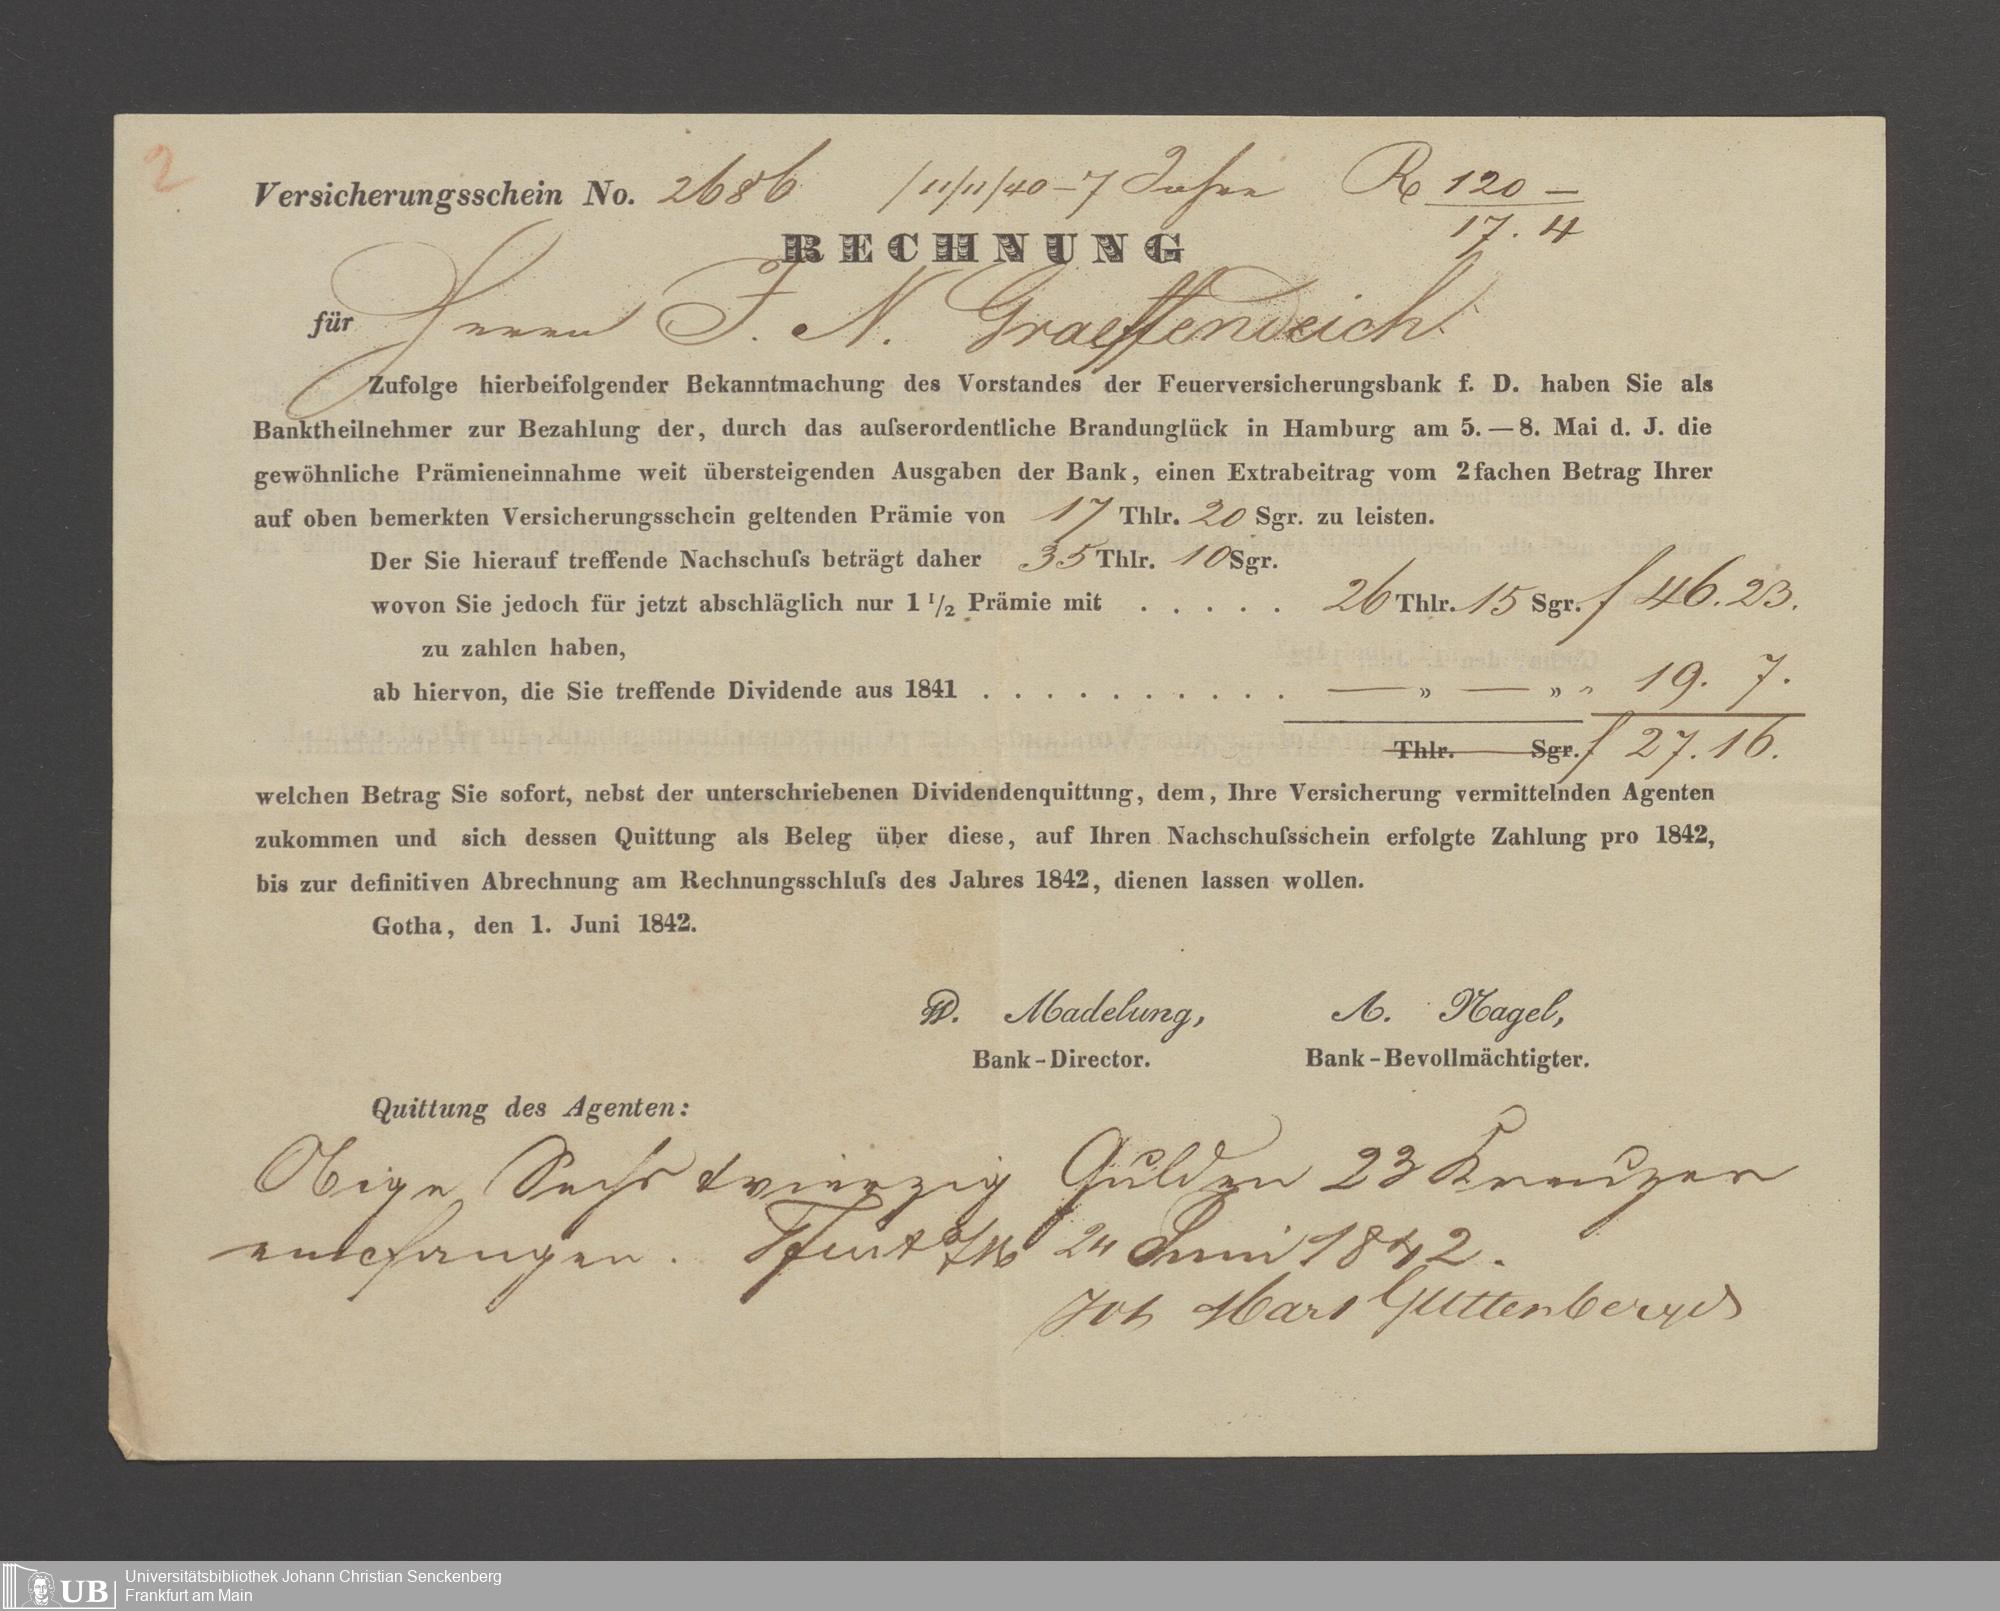 2
Versicherungsschein No. 2686 /11/11/40 - 7 Jahre R 120 —
17. 4
RECHNUNG
für Herrn J. N. Graeffendeich
Zufolge hierbeifolgender Bekanntmachung des Vorstandes der Feuerversicherungsbank f. D. haben Sie als
Banktheilnehmer zur Bezahlung der, durch das auſserordentliche Brandunglück in Hamburg am 5. — 8. Mai d. J. die
gewöhnliche Prämieneinnahme weit übersteigenden Ausgaben der Bank, einen Extrabeitrag vom 2fachen Betrag Ihrer
auf oben bemerkten Versicherungsschein geltenden Prämie von 17 Thlr. 20 Sgr. zu leisten.
Der Sie hierauf treffende Nachschuſs beträgt daher 35 Thlr. 10 Sgr.
wovon Sie jedoch für jetzt abschläglich nur 1 1/2 Prämie mit . . . . . 26 Thlr. 15 Sgr. f 46. 23.
zu zahlen haben,
ab hiervon, die Sie treffende Dividende aus 1841 . . . . . . . . . . . — „ — „ „ 19. 7.
Thlr. Sgr. f 27. 16.
welchen Betrag Sie sofort, nebst der unterschriebenen Dividendenquittung, dem, Ihre Versicherung vermittelnden Agenten
zukommen und sich dessen Quittung als Beleg über diese, auf Ihren Nachschuſsschein erfolgte Zahlung pro 1842,
bis zur definitiven Abrechnung am Rechnungsschluſs des Jahres 1842, dienen lassen wollen.
Gotha, den 1. Juni 1842.
W. Madelung, A. Nagel,
Bank-Director. Bank-Bevollmächtigter.
Quittung des Agenten:
Obige Sechs & vierzig Gulden 23 Kreuzer
empfangen. Ffurt a/M 24 Juni 1842.
Joh Mart Guttenberger
UB
Universitätsbibliothek Johann Christian Senckenberg
Frankfurt am Main